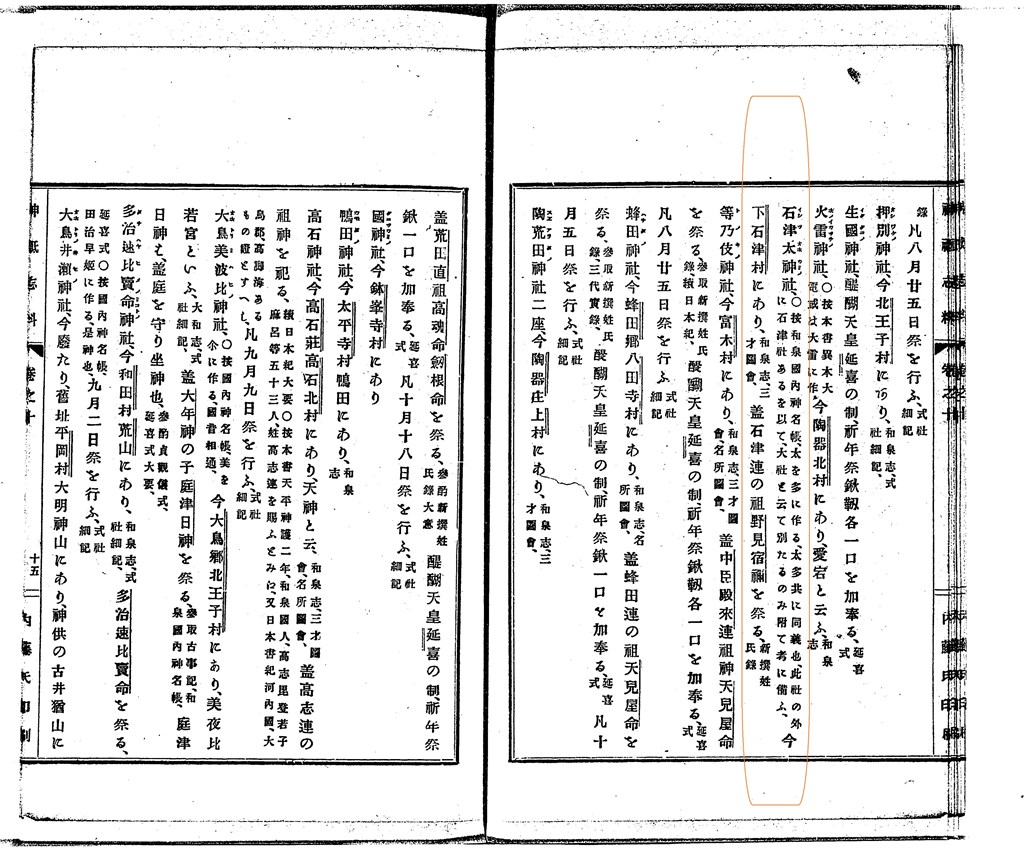 錄、凡八月廿五日祭を行ふ、式社細記
押別神社、今北王子村にあり、和泉志、式社細記、
生國神社、醍醐天皇延喜の制、祈年祭鍬靱各一口を加奉る、延喜式
火雷神社、〇按本書異本大雷或は火雷に作る 今陶器北村にあり、愛宕と云ふ、和泉志
石津太神社、〇按和泉國內神名帳、太を多に作る、太多共に同義也、此社の外に石津社あるを以て、大社と云て別たるのみ附て考に備ふ、今
下石津村にあり、和泉志、三才圖會、 蓋石津連の祖野見宿禰を祭る、新撰姓氏錄
等乃伎神社、今富木村にあり、和泉志、三才圖會、名所圖會、 蓋中臣殿來連祖神天兒屋命
を祭る、參取新撰姓氏錄、續日本紀、 醍醐天皇延喜の制、祈年祭鍬靱各一口を加奉る、延喜式
凡八月廿五日祭を行ふ、式社細記
蜂田神社、今蜂田鄉八田寺村にあり、和泉志、名所圖會、 蓋蜂田連の祖天兒屋命を
祭る、參取新撰姓氏錄、三代實錄、 醍醐天皇延喜の制、祈年祭鍬一口を加奉る、延喜式 凡十
月五日祭を行ふ、式社細記
陶荒田神社二座、今陶器庄上村にあり、和泉志、三才圖會、
蓋荒田直祖高魂命劔根命を祭る、參酌新撰姓氏錄大意 醍醐天皇延喜の制、祈年祭
鍬一口を加奉る、延喜式 凡十月十八日祭を行ふ、式社細記
國神社、今鉢峯寺村にあり
鴨田神社、今太平寺村鴨田にあり、和泉志
高石神社、今高石莊高石北村にあり、天神と云、和泉志、三才圖會、名所圖會、 蓋高志連の
祖神を祀る、續日本紀大要〇按本書天平神護二年、和泉國人、高志毘登若子麻呂等五十三人、姓高志連を賜ふとみに、又日本書紀河內國、大
鳥郡高海ある もの證とすへし、 凡九月九日祭を行ふ、式社細記
大鳥美波比神社、〇按國內神名帳、美を尒に作る、國音相通、 今大鳥鄉北王子村にあり、美夜比
若宮といふ、大和志、式社細記、 蓋大年神の子庭津日神を祭る、參取古事記、和泉國內神名帳、 庭津
日神も蓋庭を守り坐神也、參酌貞觀儀式、延喜式大要、
多治速比賣命神社、今和田村荒山にあり、和泉志、式社細記、 多治速比賣命を祭る、
延喜式〇按國內神名帳、田治早姬に作る、是神也、 九月二日祭を行ふ、式社細記
大鳥井瀨神社、今廢たり、舊址平岡村大明神山にあり、神供の古井猶山に
神祇志料
卷之十
十五
內藤氏印刷